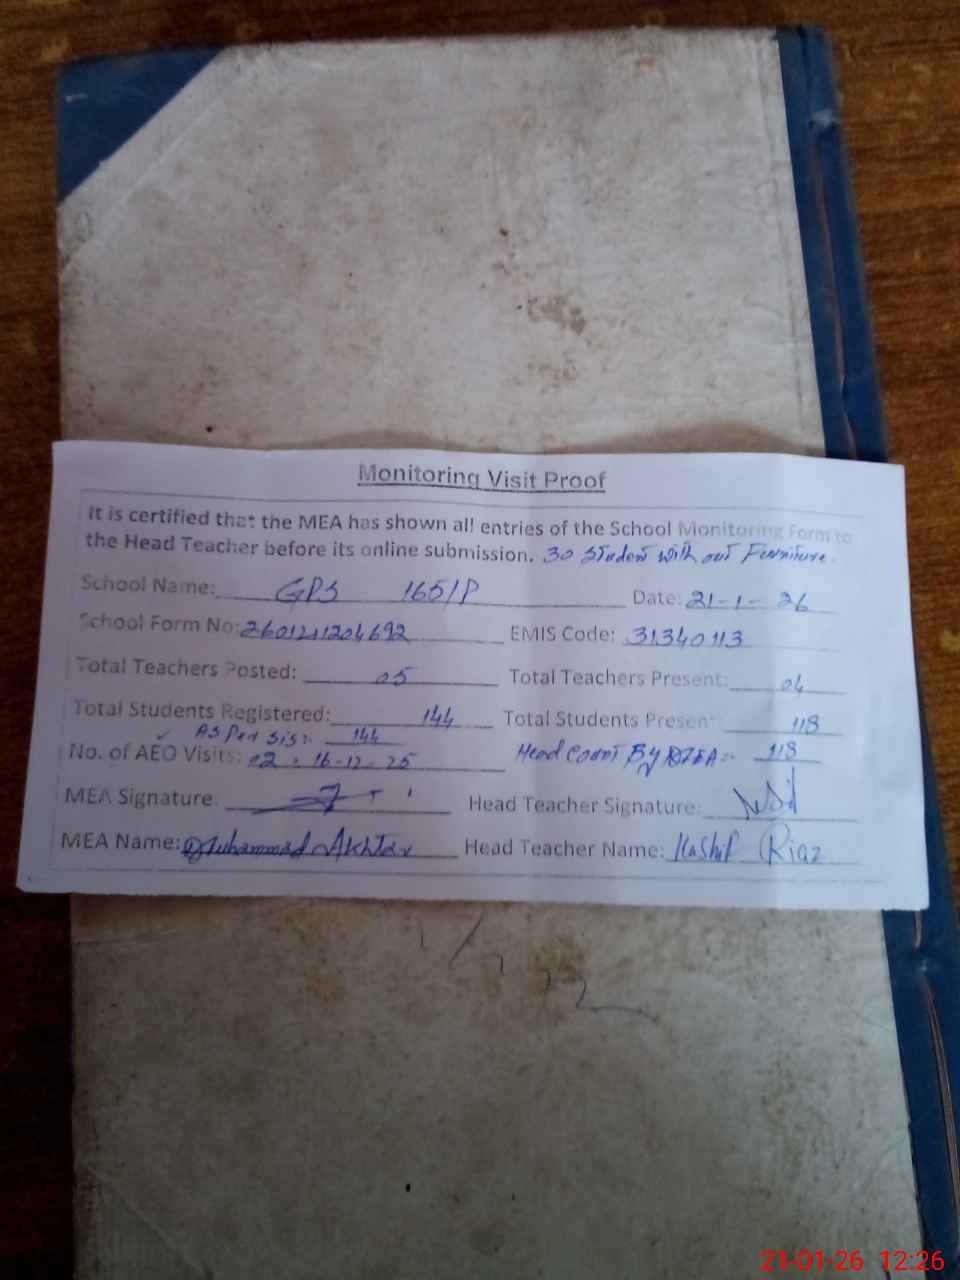 Monitoring Visit Proof
It is certified that the MEA has shown all entries of the School Monitoring Form to
the Head Teacher before its online submission. 30 Student with out Furniture.
School Name: GPS 165/P Date: 21-1-26
School Form No: 2601211204692 EMIS Code: 31340113
Total Teachers Posted: 05 Total Teachers Present: 04
Total Students Registered: 144 Total Students Present: 118
As Per Sis:- 144
No. of AEO Visits: 02 - 16-12-25 Head Count By MEA:- 118
MEA Signature. Head Teacher Signature:
MEA Name: Muhammad Akhtar Head Teacher Name: Kashif Riaz
21-01-26 12:26